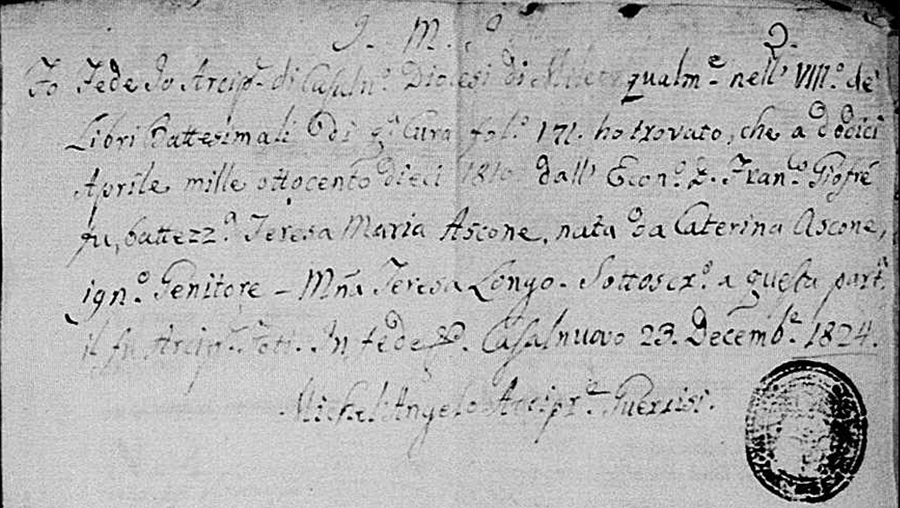 J. M. J.
Fo Fede Io Arcip.e di Casaln.o Diocesi di Mileto qualm.e nell' VIII.o de'
Libri Battesimali di q.a Cura fol.o 171. ho trovato, che a dodici
Aprile mille ottocento dieci 1810 dall' Econ.o D. Fran.o Giofrè
fu battezz.a Teresa Maria Ascone, nata da Caterina Ascone,
ign.o Genitore - Mña Teresa Longo. Sottoscr.o a questa part.a
il fu Arcip.e Foti. In fede &. Casalnuovo 23. Decemb.e 1824.
Michel'Angelo Arcipr.e Guerrisi.